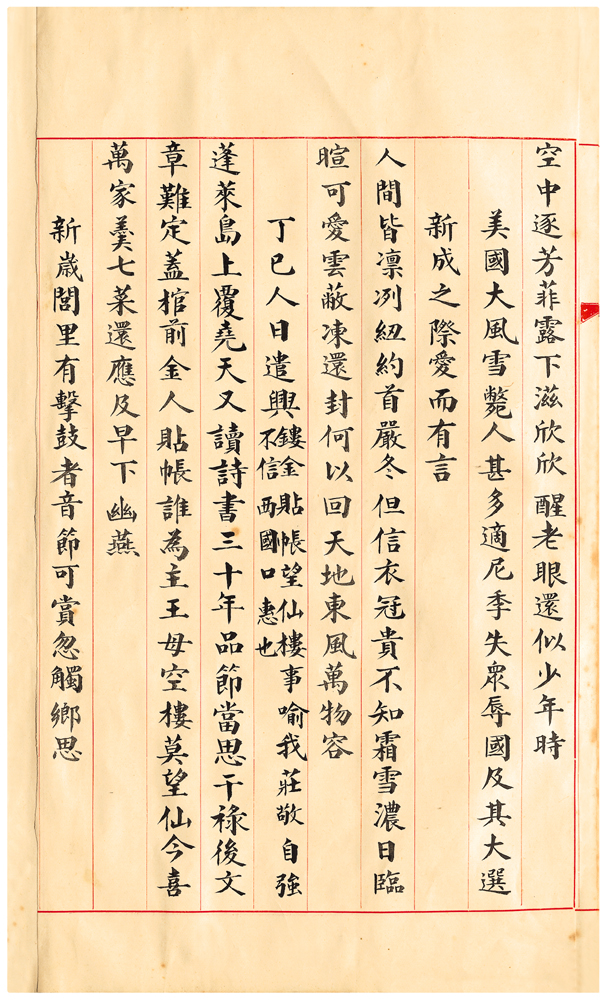 空中逐芳菲露下滋欣欣醒老眼還似少年時
美國大風雪斃人甚多適尼季失眾辱國及其大選
新成之際愛而有言
人間皆凛冽紐約首嚴冬但信衣冠貴不知霜雪濃日臨
暄可愛雲蔽凍還封何以回天地東風萬物容
丁巳人日遣興
鏤金貼帳望仙樓事喻我莊敬自強
不信西國口惠也
蓬萊島上覆堯天又讀詩書三十年品節當思干祿後文
章難定蓋棺前金人貼帳誰為主王母空樓莫望仙今喜
萬家羹七菜還應及早下幽燕
新歲閭里有擊鼓者音節可賞忽觸鄉思